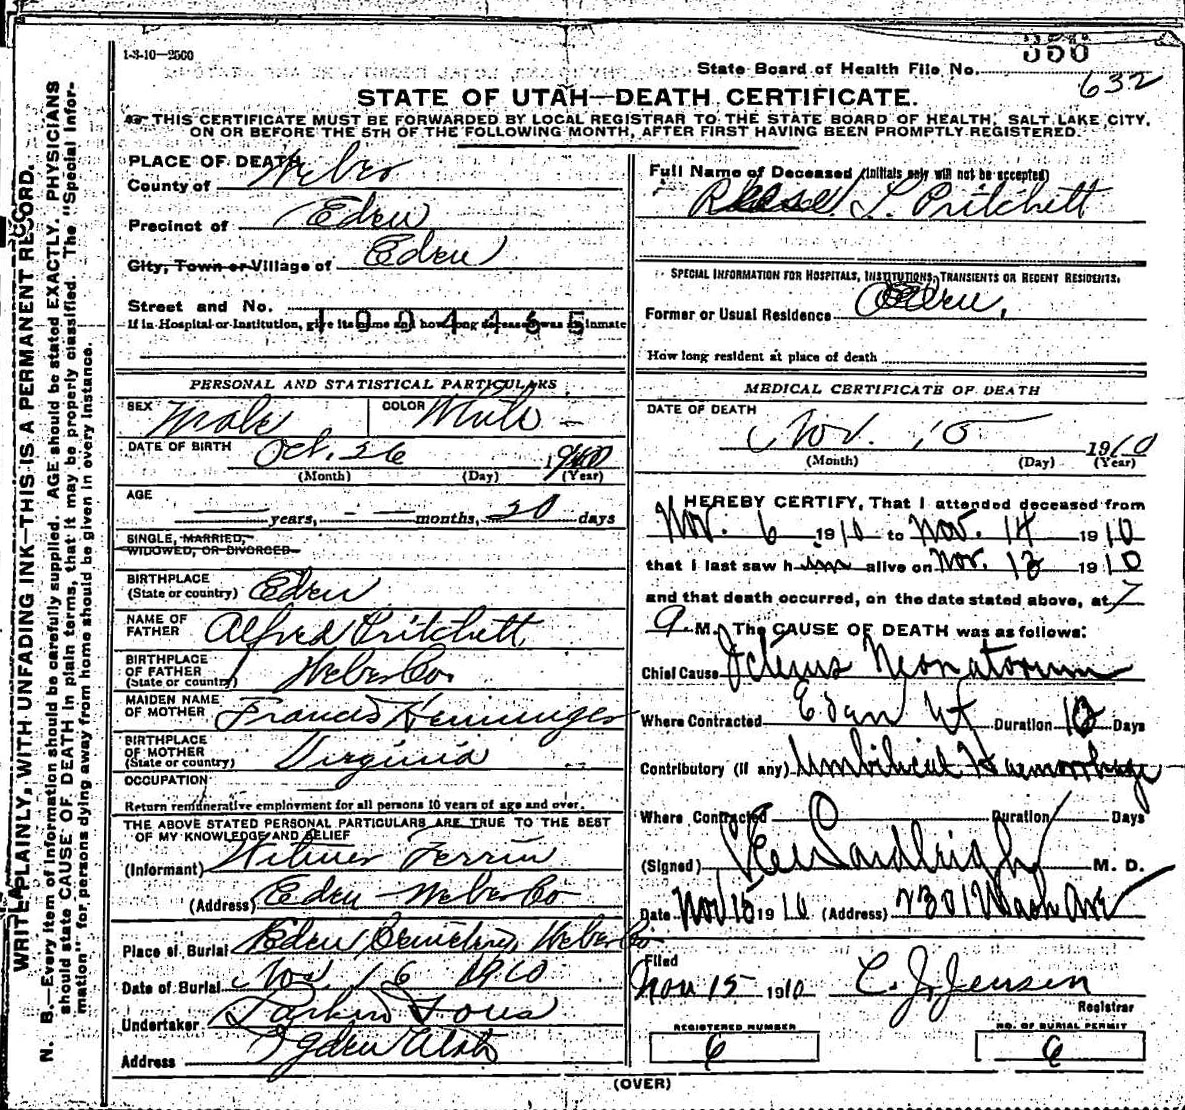 1-3-10—2500
350
State Board of Health File No.
632
STATE OF UTAH—DEATH CERTIFICATE.
THIS CERTIFICATE MUST BE FORWARDED BY LOCAL REGISTRAR TO THE STATE BOARD OF HEALTH, SALT LAKE CITY,
ON OR BEFORE THE 5TH OF THE FOLLOWING MONTH, AFTER FIRST HAVING BEEN PROMPTLY REGISTERED.
WRITE PLAINLY, WITH UNFADING INK—THIS IS A PERMANENT RECORD.
N. B.—Every item of information should be carefully supplied. AGE should be stated EXACTLY. PHYSICIANS
should state CAUSE OF DEATH in plain terms, that it may be properly classified. The "Special Infor-
mation" for persons dying away from home should be given in every instance.
PLACE OF DEATH
County of Weber
Precinct of Eden
City, Town or Village of Eden
Street and No.
1004465
If in Hospital or Institution, give its name and how long deceased was an inmate
PERSONAL AND STATISTICAL PARTICULARS
SEX Male COLOR White
DATE OF BIRTH Oct. 26 1910
(Month) (Day) (Year)
AGE
years, months, 20 days
SINGLE, MARRIED,
WIDOWED, OR DIVORCED
BIRTHPLACE
(State or country) Eden
NAME OF
FATHER Alfred Pritchett
BIRTHPLACE
OF FATHER
(State or country) Weber Co.
MAIDEN NAME
OF MOTHER Francis Hemminger
BIRTHPLACE
OF MOTHER
(State or country) Virginia
OCCUPATION
Return remunerative employment for all persons 10 years of age and over.
THE ABOVE STATED PERSONAL PARTICULARS ARE TRUE TO THE BEST
OF MY KNOWLEDGE AND BELIEF
(Informant) Wilmer Ferrin
(Address) Eden Weber Co
Place of Burial Eden Cemetery, Weber Co
Date of Burial Nov. 16 1910
Undertaker Larkin Sons
Address Ogden Utah
Full Name of Deceased (Initials only will not be accepted)
Reese L. Pritchett
SPECIAL INFORMATION FOR HOSPITALS, INSTITUTIONS, TRANSIENTS OR RECENT RESIDENTS.
Former or Usual Residence Eden.
How long resident at place of death
MEDICAL CERTIFICATE OF DEATH
DATE OF DEATH
Nov. 15 1910
(Month) (Day) (Year)
I HEREBY CERTIFY, That I attended deceased from
Nov. 6 1910 to Nov. 14 1910
that I last saw him alive on Nov. 13 1910
and that death occurred, on the date stated above, at 7
a M. The CAUSE OF DEATH was as follows:
Chief Cause Icterus Neonatorum
Where Contracted Eden Ut Duration 12 Days
Contributory (if any) Umbilical Haemorrhage
Where Contracted Duration Days
(Signed) M. D.
Date Nov 15 1910 (Address) 2301 Wash Ave
Filed
Nov 15 1910 C. J. Jensen
Registrar
REGISTERED NUMBER
6
NO. OF BURIAL PERMIT
6
(OVER)